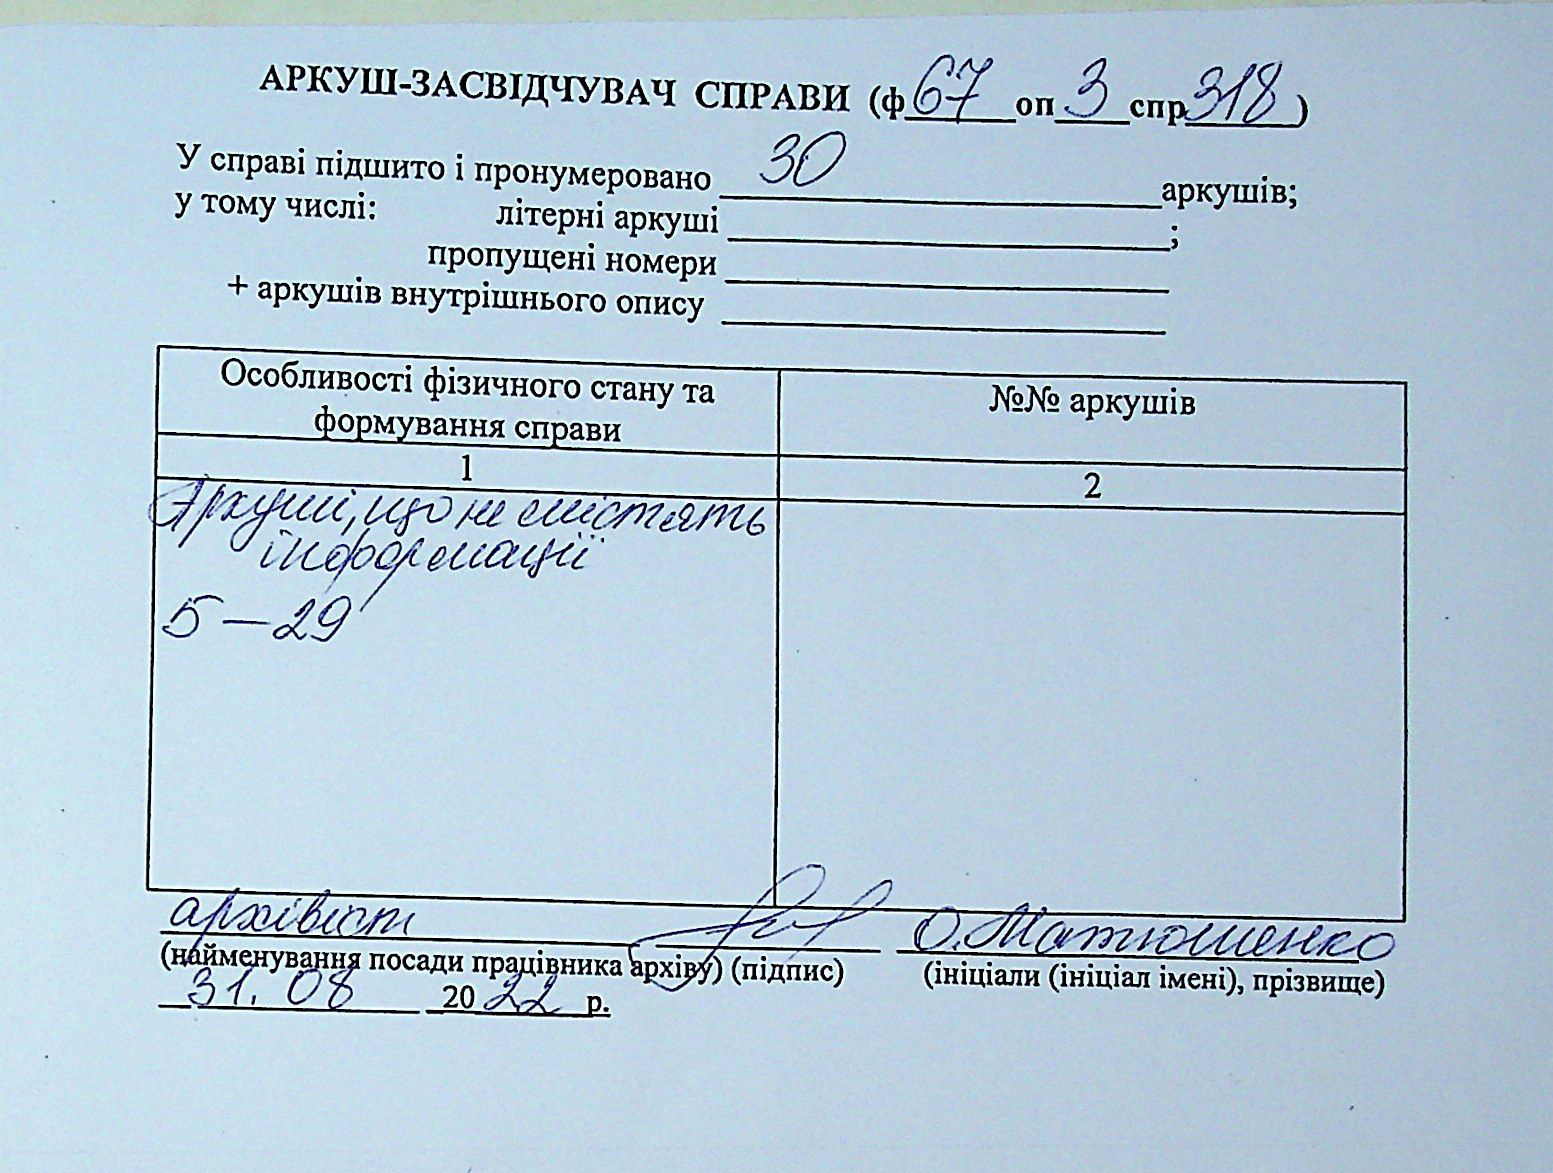 АРКУШ-ЗАСВІДЧУВАЧ СПРАВИ (ф 67 оп 3 спр 318)
У справі підшито і пронумеровано 30 аркушів;
у тому числі: літерні аркуші ;
пропущені номери
+ аркушів внутрішнього опису
Особливості фізичного стану та
формування справи
№№ аркушів
1
2
Аркуші, що не містять
інформації
5 – 29
архівіст О. Матюшенко
(найменування посади працівника архіву) (підпис) (ініціали (ініціал імені), прізвище)
31. 08 2022 р.